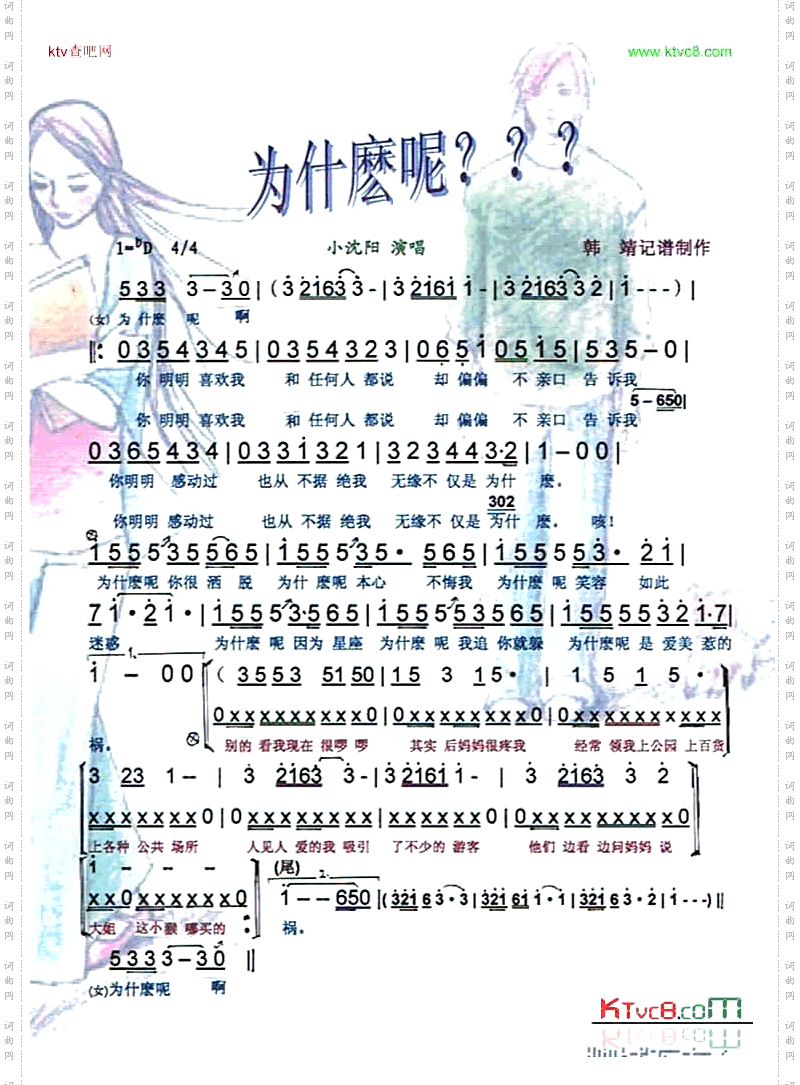 ktv查吧网
www.ktvc8.com
为什麽呢？？？
1=♭D 4/4 小沈阳 演唱 韩 靖记谱制作
5 3 3 3 — 3 0 | ( 3 2163 3 - | 3 2161 1 - | 3 2163 3 2 | 1 - - - ) |
(女) 为 什麽 呢 啊
0 3 5 4 3 4 5 | 0 3 5 4 3 2 3 | 0 6 5 1 0 5 1 5 | 5 3 5 — 0 |
你 明明 喜欢我 和 任何人 都说 却 偏偏 不 亲口 告 诉我
5 — 650|
你 明明 喜欢我 和 任何人 都说 却 偏偏 不 亲口 告 诉我
0 3 6 5 4 3 4 | 0 3 3 1 3 2 1 | 3 2 3 4 4 3·2 | 1 — 0 0 |
你明明 感动过 也从 不据 绝我 无缘不 仅是 为什 麽。
302
你明明 感动过 也从 不据 绝我 无缘不 仅是 为什 麽。 咳！
1 5 5 5 3 5 5 6 5 | 1 5 5 5 3 5 · 5 6 5 | 1 5 5 5 5 3 · 2 1 |
为什麽呢 你很 洒 脱 为什 麽呢 本心 不悔我 为什麽 呢 笑容 如此
7 1 · 2 1 · | 1 5 5 5 3·5 6 5 | 1 5 5 5 5 3 5 6 5 | 1 5 5 5 5 5 3 2 1·7 |
迷惑 为什麽 呢 因为 星座 为什麽 呢 我追 你就躲 为什麽呢 是 爱美 惹的
1.
1 — 0 0 ( 3 5 5 3 5 1 5 0 | 1 5 3 1 5 · | 1 5 1 5 ·
0 x x x x x x x x x 0 | 0 x x x x x x x x 0 | 0 x x x x x x x x x
祸。 别的 看我现在 很啰 啰 其实 后妈妈很疼我 经常 领我上公园 上百货
3 23 1 — | 3 2163 3 - | 3 2161 1 - | 3 2163 3 2
x x x x x x x x 0 | 0 x x x x x x x x x | x x x x x x x 0 | 0 x x x x x x x x 0
上各种 公共 场所 人见人 爱的我 吸引 了不少的 游客 他们 边看 边问妈妈 说
1 - - - (尾) 2.
x x 0 x x x x x x 0 : 1 — — 650 | ( 321 6 3·3 | 321 61 1·1 | 321 6 3·2 | 1 - - - ) ||
大姐 这小猴 哪买的 祸。
5 3 3 3 — 3 0 ||
(女)为什麽呢 啊
KTvc8.coM